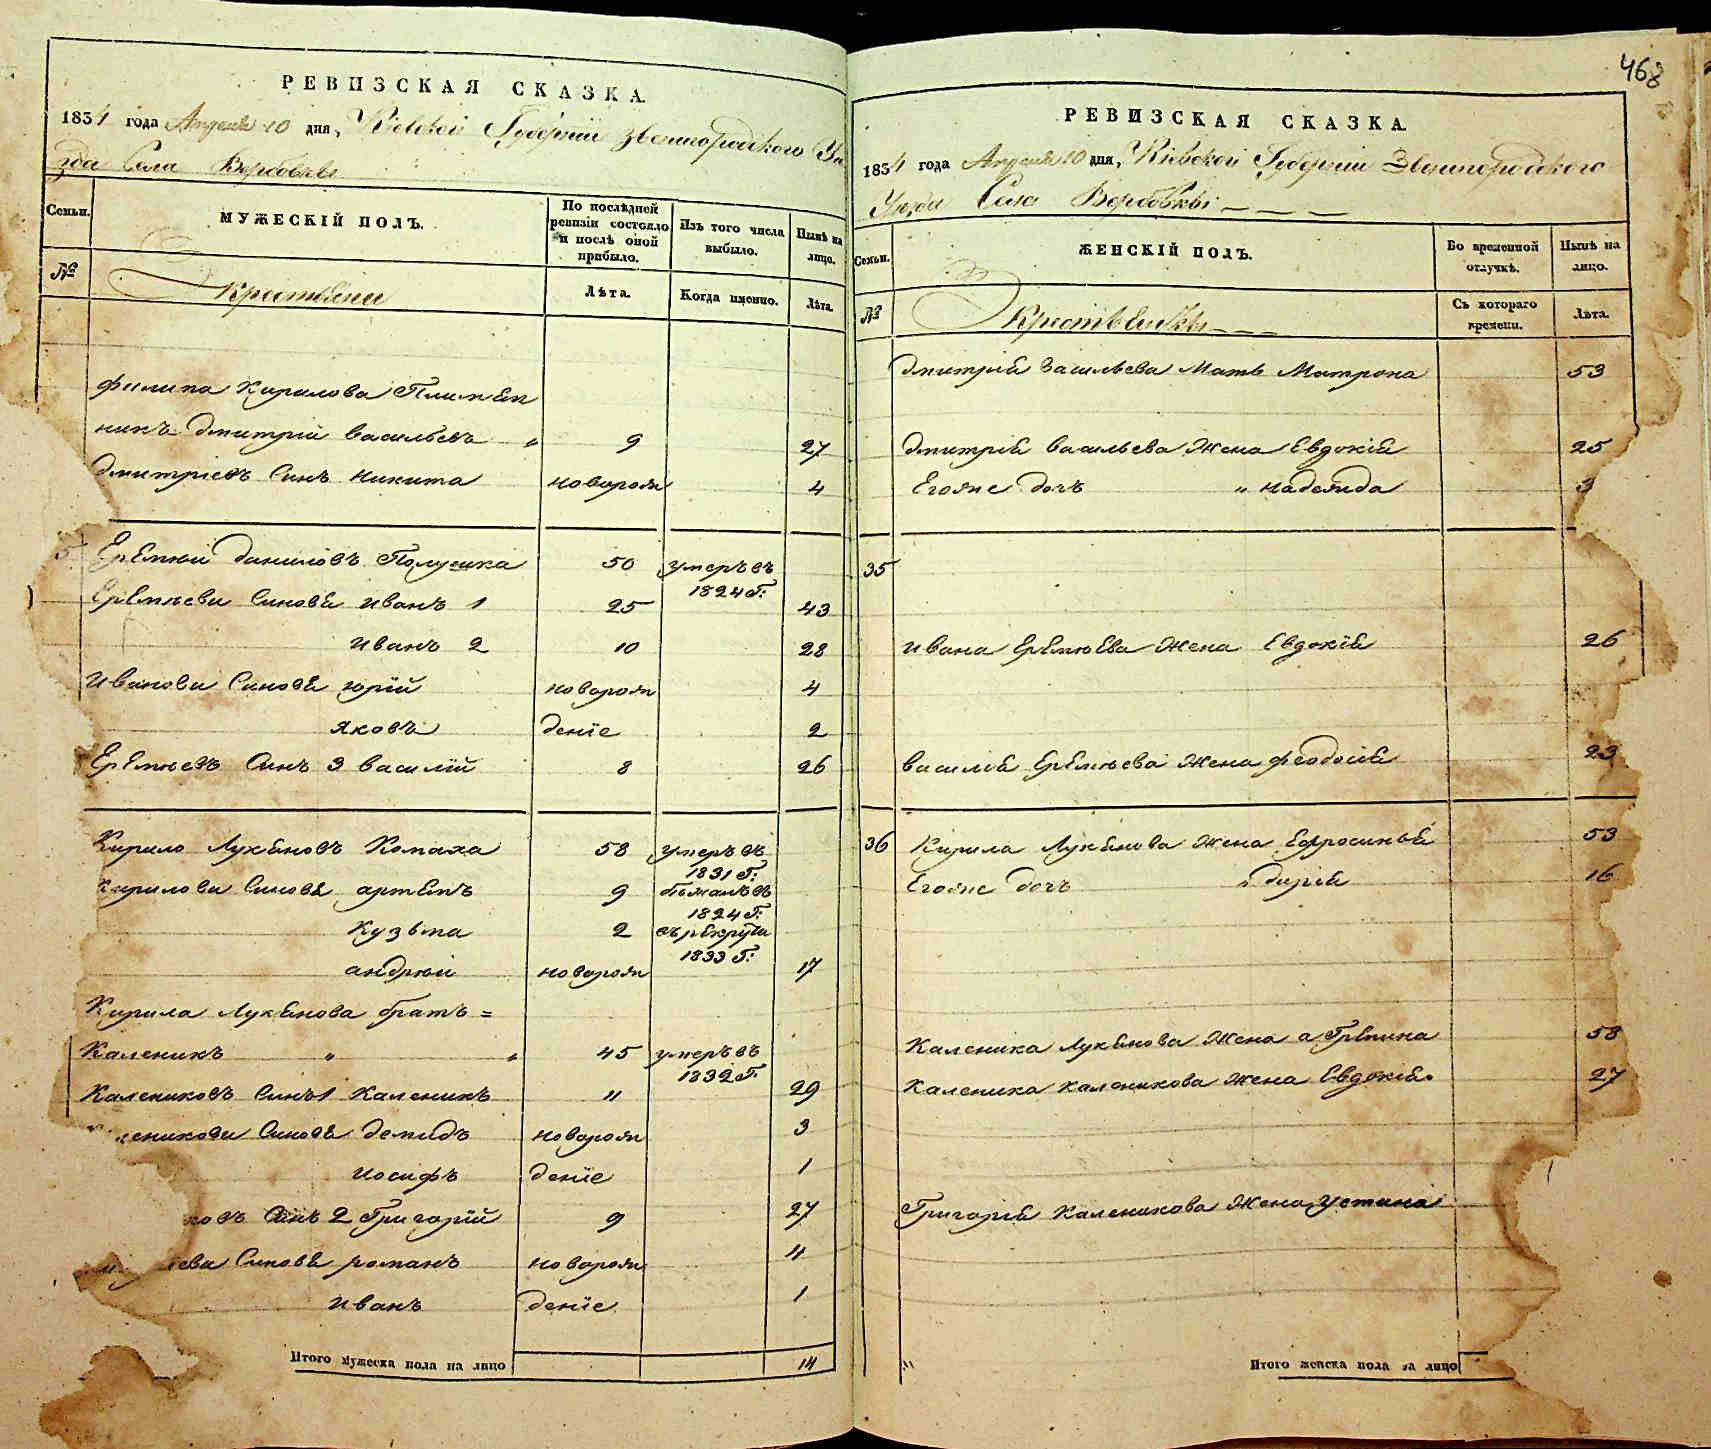 468
РЕВИЗСКАЯ СКАЗКА
1834 года Апреля 10 дня, Кіевской Губерніи Звенигородского Уѣ
зда Села Вербовки
Семьи.
МУЖЕСКІЙ ПОЛЪ.
По послѣдней ревизіи состояло и послѣ оной прибыло.
Изъ того числа выбыло.
Нынѣ на лицо.
№
Крестьяне
Лѣта.
Когда именно.
Лѣта.
Филипа Кирилова Племен
никъ Дмитрій Васильевъ " 9 27
Дмитріевъ Синъ Никита новорож 4
Еремѣй Даниловъ Полушка 50 умеръ въ
1824 Г:
Еремѣеви Синовѣ Иванъ 1 25 43
Иванъ 2 10 28
Иванови Синовѣ Юрій новорож 4
Яковъ деніе 2
Еремѣевъ Синъ 3 Василій 8 26
Кирило Лукяновъ Комаха 58 умеръ въ
1831 Г:
Кирилови Синовѣ Артемъ 9 бѣжалъ въ
1824 Г:
Кузьма 2 въ рекрути
1833 Г:
Андрѣй новорож 17
Кирила Лукянова братъ =
Каленикъ " " 45 умеръ въ
1832 Г.
Калениковъ Синъ 1 Каленикъ 11 29
еникови Синовѣ Демидъ новорож 3
Иосифъ деніе 1
ковъ Синъ 2 Григорій 9 27
ева Синовѣ Романъ новорож 11
Иванъ деніе 1
Итого мужеска пола на лицо 14
РЕВИЗСКАЯ СКАЗКА
1834 года Апреля 10 дня, Кіевской Губерніи Звенигородского
Уѣзда Села Вербовки
Семьи.
ЖЕНСКІЙ ПОЛЪ.
Во временной отлучкѣ.
Нынѣ на лицо.
№
Крестьянки
Съ котораго времени.
Лѣта.
Дмитрія Васильева Мать Матрона 53
Дмитрія Васильева Жена Евдокія 25
Егоже дочь " Надежда 3
35
Ивана Еремѣева Жена Евдокія 26
Василія Еремѣева Жена Феодосія 23
36 Кирила Лукянова Жена Ефросинья 53
Егоже дочь " Дарія 16
Каленика Лукянова Жена Агрепина 58
Каленика Каленикова Жена Евдокія 27
Григорія Каленикова Жена Устина
Итого женска пола на лицо